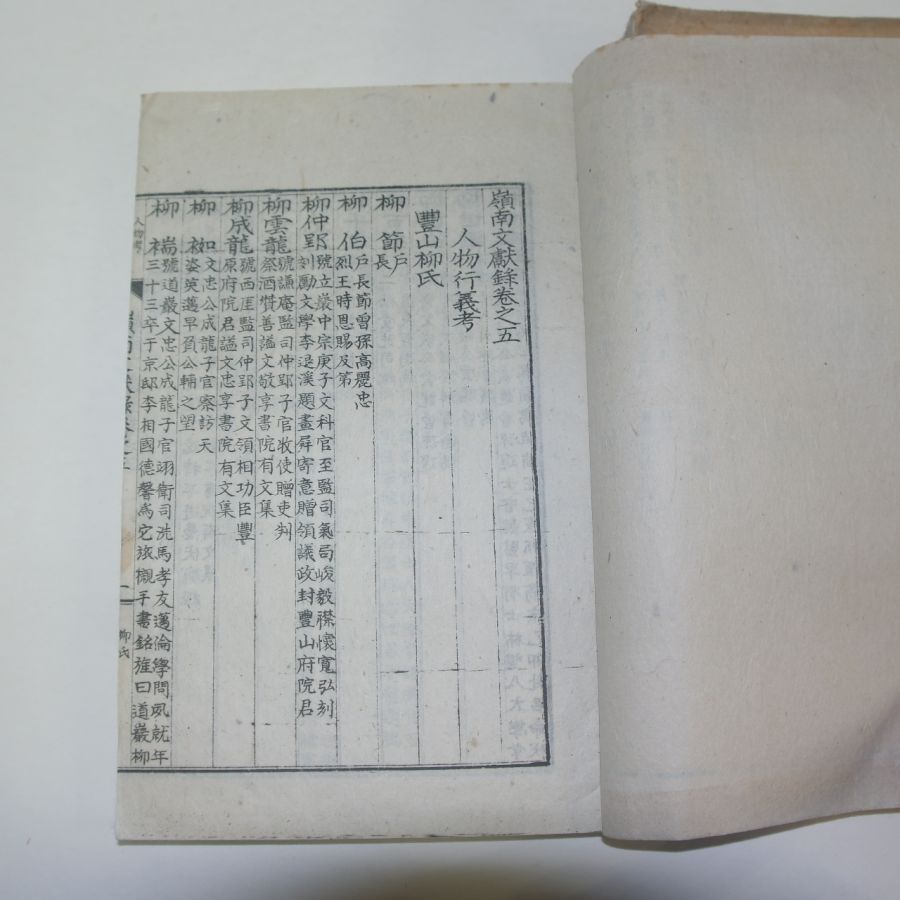 嶺南文獻錄卷之五
人物行義考
豐山柳氏
柳節戶長
柳伯戶長節曾孫高麗忠
烈王時恩賜及第
柳仲郢號立巖中宗庚子文科官至監司氣局峻毅襟懷寬弘刻
刻勵文學李退溪題畫屛寄意贈領議政封豐山府院君
柳雲龍號謙庵監司仲郢子官牧使贈吏判
祭酒贊善謚文敬享書院有文集
柳成龍號西厓監司仲郢子文領相功臣豐
原府院君謚文忠享書院有文集
柳袽文忠公成龍子官察訪天
姿英邁早負公輔之望
柳褍號道巖文忠公成龍子官翊衛司洗馬孝友邁倫學問夙就年
三十三卒于京邸李相國德馨爲它旅櫬手書銘旌曰道巖柳
人物考
嶺南文獻錄卷之五
一
柳氏